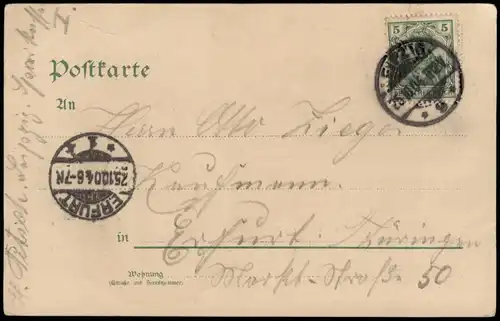 Postkarte
An
Herrn Otto Zieger
Kaufmann.
in Erfurt. Thüringen
Markt-Straße 50
Wohnung
(Straße und Hausnummer)
5 5
LEIPZIG
ERFURT
25.10.04.6-7N
H. Leipzig.
I.